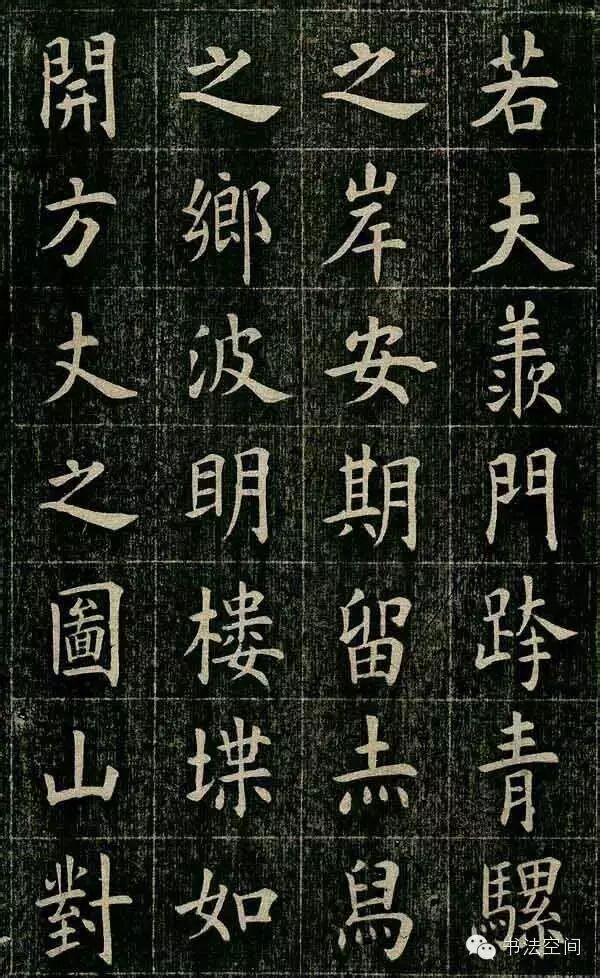 若夫羨門跨青騾
之岸安期留赤舄
之鄉波明樓堞如
開方丈之圖山對
书法空间